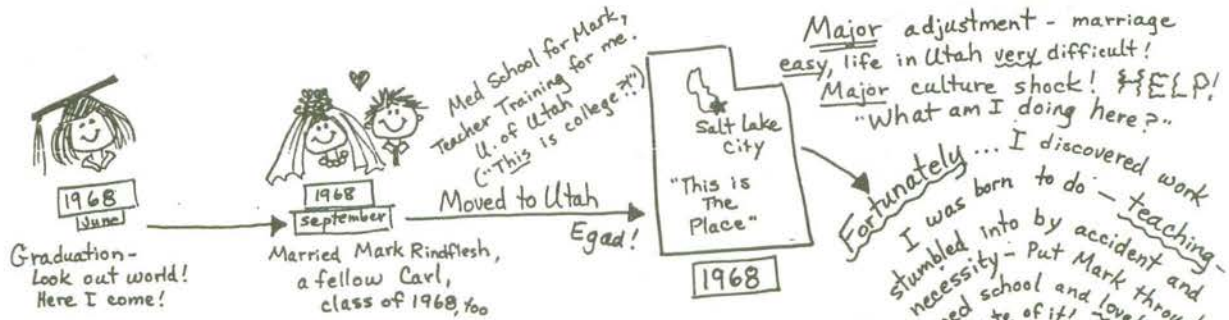 1968
June
Graduation-
Look out world!
Here I come!
1968
September
Married Mark Rindflesh,
a fellow Carl,
class of 1968, too
Med School for Mark,
Teacher Training for me.
U. of Utah
("This is college?!")
Moved to Utah
Egad!
Salt Lake
City
"This is
The
Place"
1968
Major adjustment - marriage
easy, life in Utah very difficult!
Major culture shock! HELP!
"What am I doing here?"
Fortunately... I discovered work
I was born to do - teaching -
stumbled into by accident and
necessity - Put Mark
school and
of it!